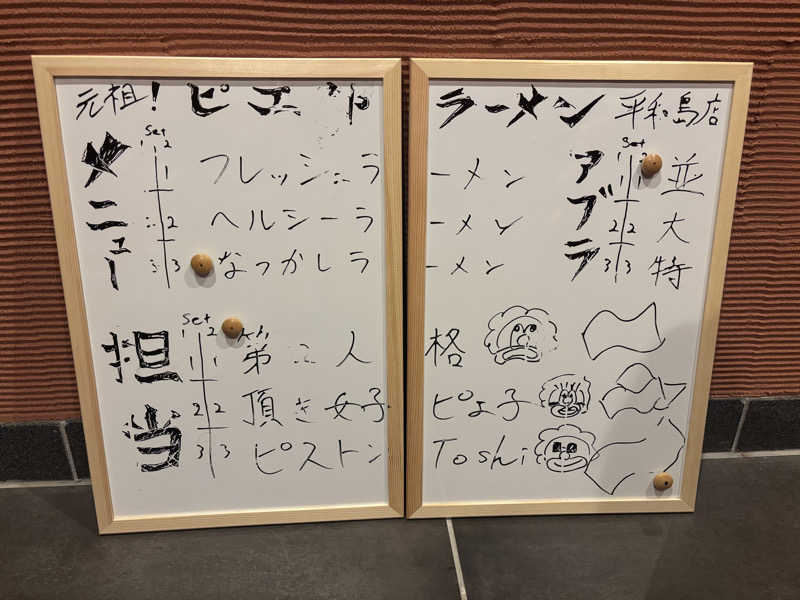 元祖! ピエ
ラーメン 平和島店
メニュー
Set
1 2
1 フレッシュラーメン
2 ヘルシーラーメン
3 なつかしラーメン
アブラ
Set
1 2
1 1 並
2 2 大
3 3 特
担当
Set
1 2
1 1 弟 人格
2 2 頂き女子ピよ子
3 3 ピストンToshi